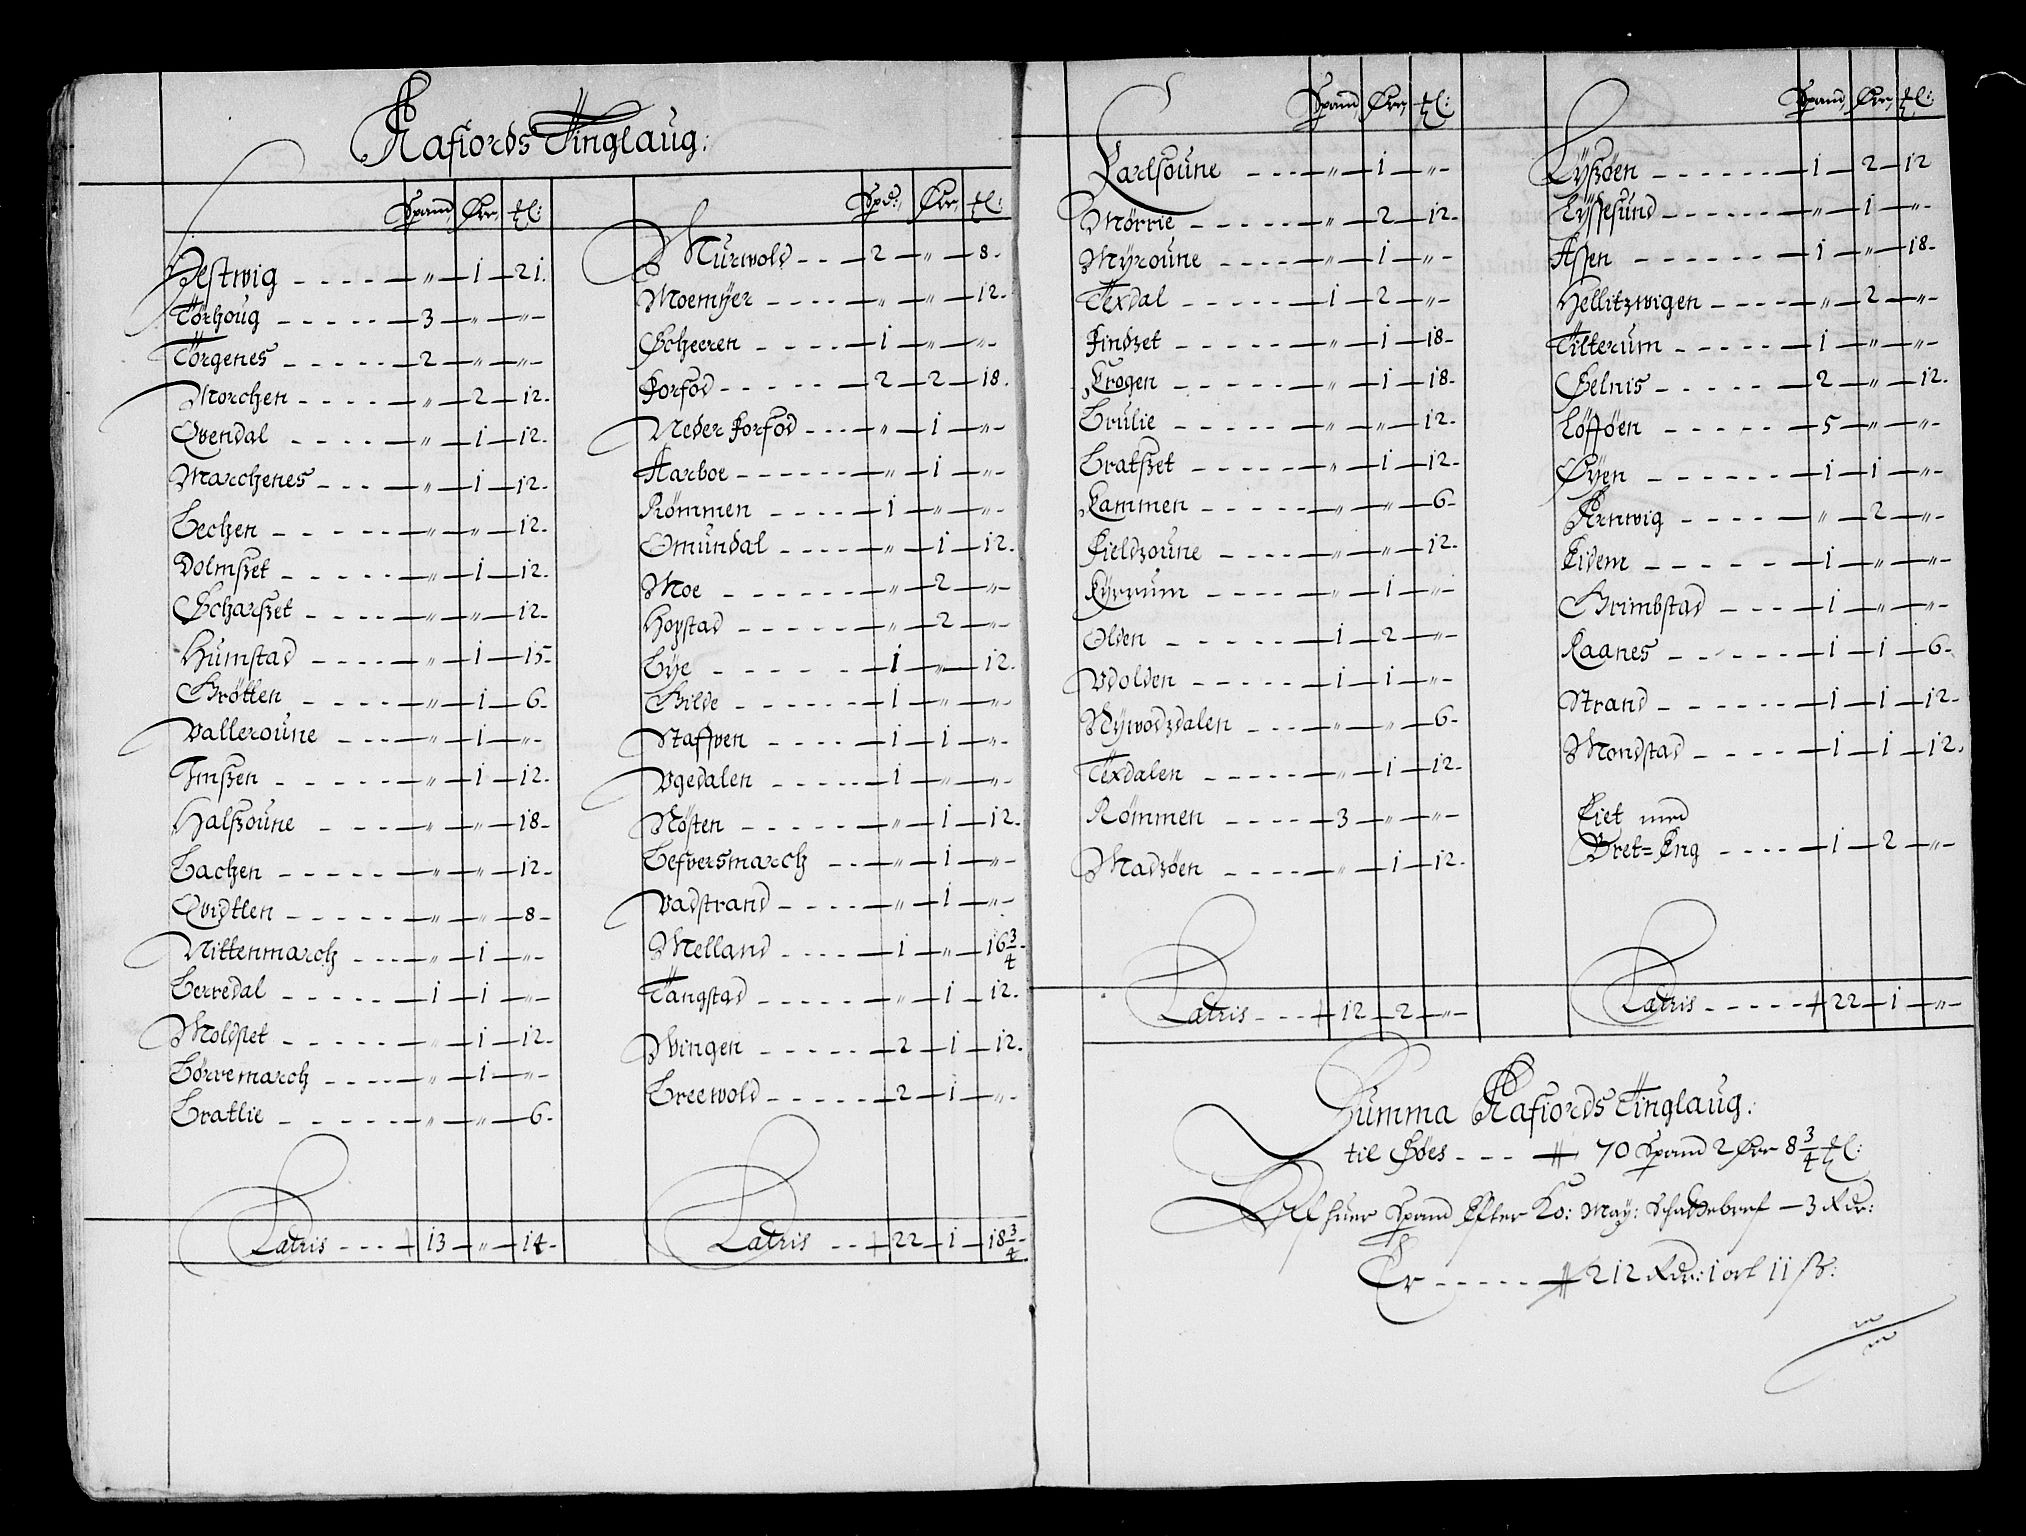 Aafiords Tinglaug:
Spand, Ørr, ℔:
Hestwig - - - - - „ 1 21.
Törhoug - - - - - 3 „ „
Törgenes - - - - - 2 „ „
Morchen - - - - „ 2 12.
Qvendal - - - - - „ 1 12.
Marchenes - - - - „ 1 12.
Bechen - - - - - - „ „ 12.
Dolmszet - - - - - „ 1 12.
Scharszet - - - - - „ „ 12.
Humstad - - - - - „ 1 15.
Grötten - - - - - - „ 1 6.
Valleroune - - - - „ 1 „
Imszen - - - - - - „ 1 12.
Halszoune - - - - „ „ 18.
Bachen - - - - - - „ „ 12.
Qvidtlen - - - - - „ „ 8
Nittenmarch - - - „ 1 „
Berredal - - - - - 1 1 „
Moldset - - - - - „ 1 12.
Börvemarch - - - - „ 1 „
Bratlie - - - - - - „ „ 6.
Latris - - - 13 „ 14.
Spd: Ørr, ℔:
Murwold - - 2 „ 8.
Moemÿer - - - - „ „ 12.
Scheeren - - - - 1 „ „
Forfod - - - - - 2 2 18.
Neder Forfod - - - „ 1 „
Aarboe - - - - - - „ 1 „
Römmen - - - - 1 „ „
Omundal - - - - „ 1 12.
Moe - - - - - - - „ 2 „
Hopstad - - - - - „ 2 „
Bÿe - - - - - - - 1 „ 12.
Gilde - - - - - - 1 „ „
Staffven - - - - 1 1 „
Vgedalen - - - - 1 „ „
Nösten - - - - - „ 1 12.
Lefversmarch - - - „ 1 „
Vadstrand - - - - „ 1 „
Melland - - - - 1 „ 16 3/4
Tangstad - - - - - „ 1 12.
Wingen - - - - - 2 1 12.
Breewold - - - - 2 1 „
Latris - - 22 1 18 3/4
Spand, Ørr, ℔:
Karlsoune - - - „ 1 „
Mörrie - - - - - „ 2 12.
Mÿroune - - - - - „ 1 „
Texdal - - - - - 1 2 „
Findzet - - - - - „ 1 18
Krogen - - - - - „ 1 18
Brulie - - - - - - „ „ 12.
Bratszet - - - - - „ 1 12
Kammen - - - - - „ „ 6
Fieldzoune - - - - „ „ 12.
Kÿrrum - - - - - „ 1 „
Olden - - - - - - 1 2 „
Vdolden - - - - - 1 1 „
Nÿwodzdalen - - - „ „ 6
Texdalen - - - - - „ 1 12.
Römmen - - - - - 3 „ „
Madzöen - - - - - „ 1 12.
Latris - - - 12 2 „
Spand, Ørr, ℔:
Lÿszöen - - - - - - 1 2 12
Lÿssesund - - - - - „ 1 „
Assen - - - - - - 1 „ 18
Hellitzwigen - - - - „ 2 „
Tilterum - - - - - 1 „ „
Selnis - - - - - - 2 „ 12.
Löfföen - - - - - 5 „ „
Øÿen - - - - - - 1 1 „
Arnwig - - - - - „ 2 „
Eidem - - - - - - 1 „ „
Grimbstad - - - - 1 „ „
Raanes - - - - - 1 1 6
Strand - - - - - - 1 1 12.
Mondstad - - - - 1 1 12.
Eiet med
Bret=Eng - - - - 1 2 „
Latris - - - - - 22 1 „
Summa Aafiords Tinglaug:
til Søes - - - - 70 Spand 2 Ørr 8 3/4 ℔:
Aff huer Spand Efter Ko: May: Schattebref — 3 Rdr:
Er - - - - - 212 Rdr: 1 ort 11 ß: